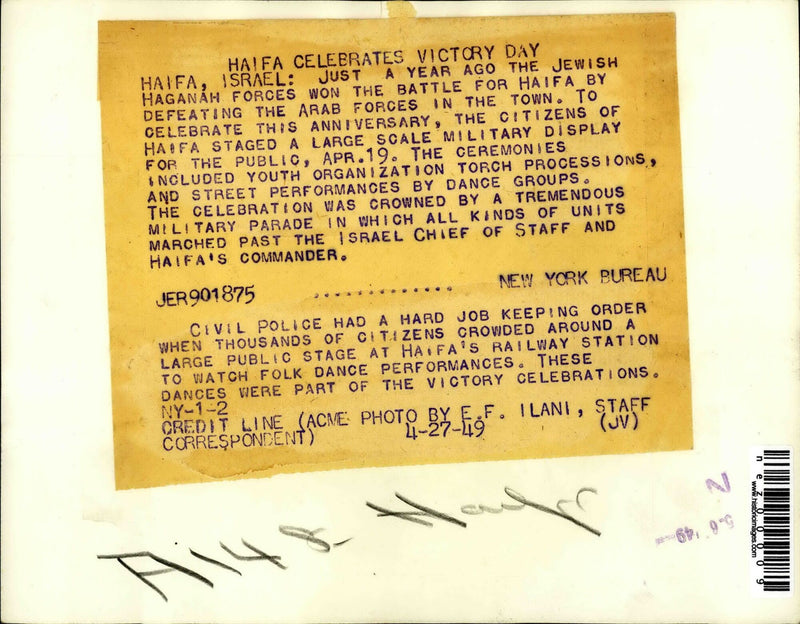 HAIFA CELEBRATES VICTORY DAY
HAIFA, ISRAEL: JUST A YEAR AGO THE JEWISH
HAGANAH FORCES WON THE BATTLE FOR HAIFA BY
DEFEATING THE ARAB FORCES IN THE TOWN. TO
CELEBRATE THIS ANNIVERSARY, THE CITIZENS OF
HAIFA STAGED A LARGE SCALE MILITARY DISPLAY
FOR THE PUBLIC, APR.19. THE CEREMONIES
INCLUDED YOUTH ORGANIZATION TORCH PROCESSIONS,
AND STREET PERFORMANCES BY DANCE GROUPS.
THE CELEBRATION WAS CROWNED BY A TREMENDOUS
MILITARY PARADE IN WHICH ALL KINDS OF UNITS
MARCHED PAST THE ISRAEL CHIEF OF STAFF AND
HAIFA'S COMMANDER.
JER901875 ............. NEW YORK BUREAU
CIVIL POLICE HAD A HARD JOB KEEPING ORDER
WHEN THOUSANDS OF CITIZENS CROWDED AROUND A
LARGE PUBLIC STAGE AT HAIFA'S RAILWAY STATION
TO WATCH FOLK DANCE PERFORMANCES. THESE
DANCES WERE PART OF THE VICTORY CELEBRATIONS.
NY-1-2
CREDIT LINE (ACME PHOTO BY E.F. ILANI, STAFF
CORRESPONDENT) 4-27-49 (JV)
A148 Haifa
nez00009
www.historicimages.com